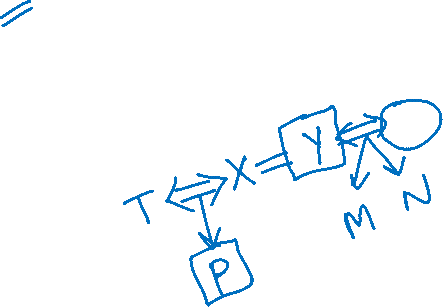 =
T ⇔ X = Y ⇔
P
M N